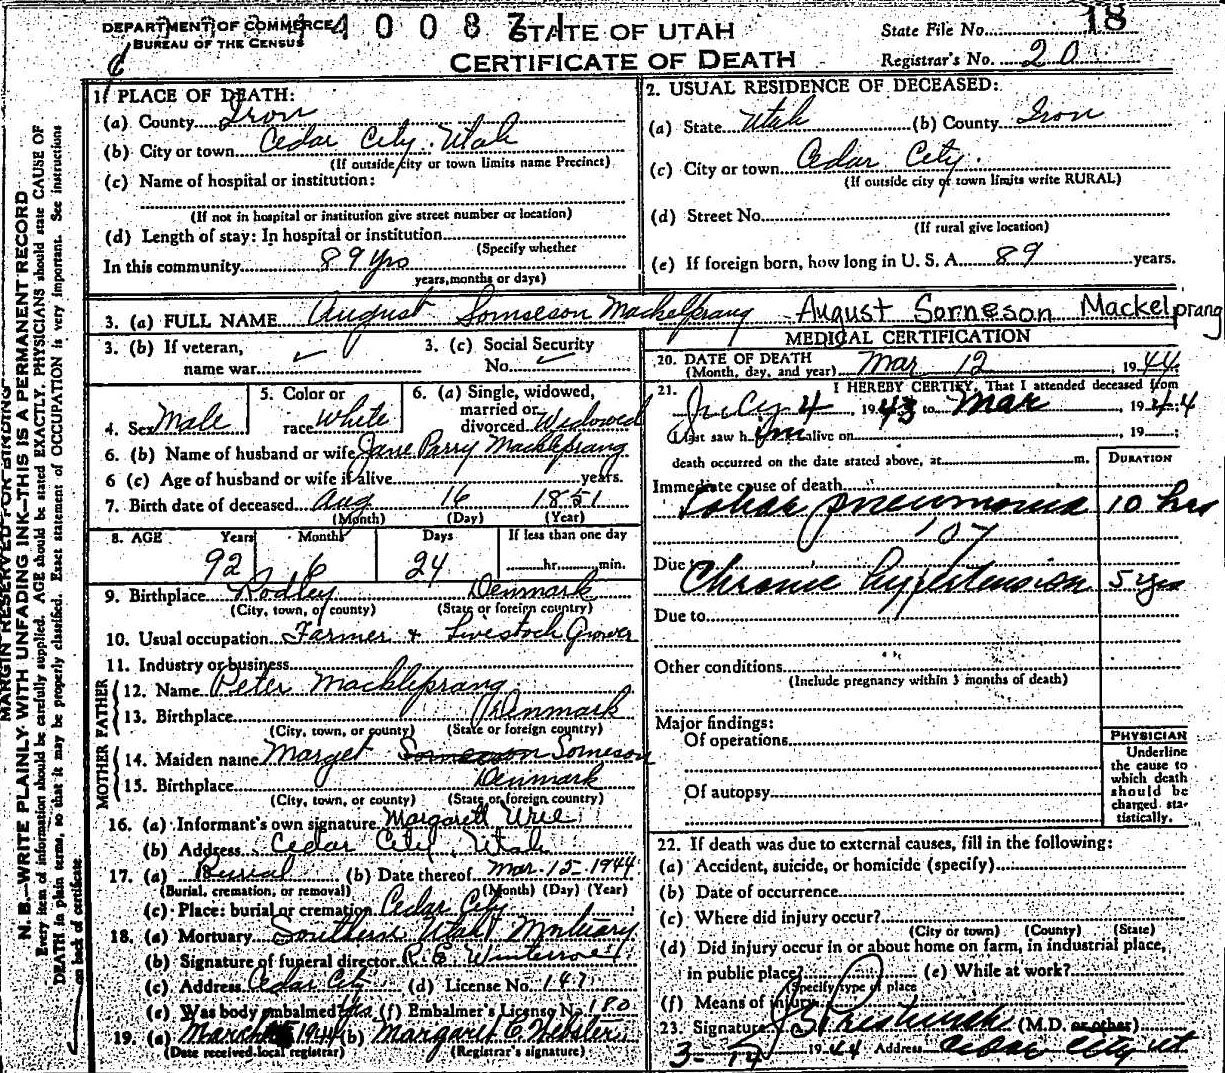 DEPARTMENT OF COMMERCE
BUREAU OF THE CENSUS
STATE OF UTAH
CERTIFICATE OF DEATH
State File No. 18
Registrar's No. 20
MARGIN RESERVED FOR BINDING
N. B.—WRITE PLAINLY WITH UNFADING INK—THIS IS A PERMANENT RECORD
Every item of information should be carefully supplied. AGE should be stated EXACTLY. PHYSICIANS should state CAUSE OF
DEATH in plain terms, so that it may be properly classified. Exact statement of OCCUPATION is very important. See instructions
on back of certificate.
1. PLACE OF DEATH:
(a) County Iron
(b) City or town Cedar City, Utah
(If outside city or town limits name Precinct)
(c) Name of hospital or institution:
(If not in hospital or institution give street number or location)
(d) Length of stay: In hospital or institution
(Specify whether
In this community 89 yrs
years, months or days)
2. USUAL RESIDENCE OF DECEASED:
(a) State Utah (b) County Iron
(c) City or town Cedar City.
(If outside city or town limits write RURAL)
(d) Street No.
(If rural give location)
(e) If foreign born, how long in U. S. A. 89 years.
3. (a) FULL NAME August Sorneson Mackelprang August Sorneson Mackelprang
3. (b) If veteran, name war 3. (c) Social Security No.
4. Sex Male 5. Color or race White 6. (a) Single, widowed, married or divorced Widowed
6. (b) Name of husband or wife Jane Parry Mackleprang
6 (c) Age of husband or wife if alive years.
7. Birth date of deceased Aug 16 1851
(Month) (Day) (Year)
8. AGE Years Months Days If less than one day
92 6 24 hr. min.
9. Birthplace Rodley Denmark
(City, town, or county) (State or foreign country)
10. Usual occupation Farmer & Livestock Grower
11. Industry or business
FATHER
12. Name Peter Mackleprang
13. Birthplace Denmark
(City, town, or county) (State or foreign country)
MOTHER
14. Maiden name Marget Sorneson
15. Birthplace Denmark
(City, town, or county) (State or foreign country)
16. (a) Informant's own signature Margarett Urie
(b) Address Cedar City, Utah
17. (a) Burial (b) Date thereof Mar. 15-1944
(Burial, cremation, or removal) (Month) (Day) (Year)
(c) Place: burial or cremation Cedar City
18. (a) Mortuary Southern Utah Mortuary
(b) Signature of funeral director
(c) Address Cedar City (d) License No. 147
(e) Was body embalmed Yes (f) Embalmer's License No. 180
19. (a) March 1944 (b) Margaret C. Webster
(Date received local registrar) (Registrar's signature)
MEDICAL CERTIFICATION
20. DATE OF DEATH Mar 12 1944
(Month, day, and year)
21. I HEREBY CERTIFY, That I attended deceased from
July 4, 1943 to Mar, 1944
I last saw him alive on 19
death occurred on the date stated above, at m.
DURATION
Immediate cause of death
Lobar pneumonia 10 hrs
107
Due to
Chronic hypertension 5 yrs
Due to
Other conditions
(Include pregnancy within 3 months of death)
Major findings:
Of operations
Of autopsy
PHYSICIAN
Underline
the cause to
which death
should be
charged sta-
tistically.
22. If death was due to external causes, fill in the following:
(a) Accident, suicide, or homicide (specify)
(b) Date of occurrence
(c) Where did injury occur?
(City or town) (County) (State)
(d) Did injury occur in or about home on farm, in industrial place,
in public place? (e) While at work?
(Specify type of place
(f) Means of injury
23. Signature (M.D. or other)
1944 Address Cedar City Ut